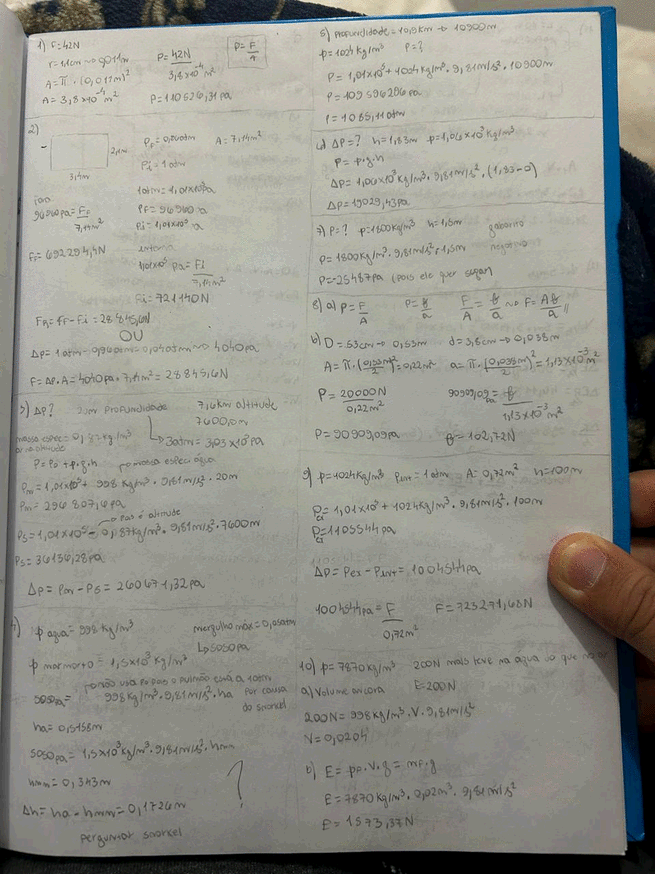 1) F=42N
r=1,1cm → 0,011m
A=π.(0,011m)²
A=3,8x10⁻⁴m²
P=42N/3,8x10⁻⁴m²
P=110526,31pa
P=F/A
2)
2,1m
3,4m
Pi=1atm
A=7,14m²
1atm=1,01x10⁵pa
PF=96960pa
Pi=1,01x10⁵pa
fora
96960pa=FF/7,14m²
FF=692294,4N
interna
1,01x10⁵pa=Fi/7,14m²
Fi=721140N
FR=FF-Fi=28845,6N
OU
ΔP=1atm-0,960atm=0,04atm → 4040pa
F=ΔP.A=4040pa.7,14m²=28845,6N
3) ΔP?
20m profundidade
7,6km altitude
7600,0m
↳ 3atm=3,03x10⁵pa
massa espec=0,87kg/m³
ar na altitude
P=P0+p.g.h
p=massa espec água
Pm=1,01x10⁵+998kg/m³.9,81m/s².20m
Pm=296807,6pa
pois é altitude
Ps=1,01x10⁵-0,87kg/m³.9,81m/s².7600m
Ps=36136,28pa
ΔP=Pm-Ps=260671,32pa
4)
p agua=998kg/m³
mergulho máx=0,05atm
↳ 5050pa
p marmorto=1,5x10³kg/m³
não usa P0 pois o pulmão está a 1atm
por causa do snorkel
5050pa=998kg/m³.9,81m/s².ha
ha=0,5158m
5050pa=1,5x10³kg/m³.9,81m/s².hmm
hmm=0,343m
Δh=ha-hmm=0,1726m
?
perguntar snorkel
5) profundidade=10,9km → 10900m
p=1024kg/m³ P=?
P=1,01x10⁵+1024kg/m³.9,81m/s².10900m
P=109596296pa
P=1085,11atm
6) ΔP=? h=1,83m p=1,06x10³kg/m³
P=p.g.h
ΔP=1,06x10³kg/m³.9,81m/s².(1,83-0)
ΔP=19029,43pa
7) P=? p=1800kg/m³ h=1,5m
gabarito
negativo
P=1800kg/m³.9,81m/s².1,5m
P=-25487pa (pois ele quer sugar)
8) a) P=F/A P=f/a F/A=f/a → F=Af/a //
b) D=53cm → 0,53m d=3,8cm → 0,038m
A=π.(0,53m/2)²=0,22m² a=π.(0,038m/2)²=1,13x10⁻³m²
P=20000N/0,22m²
90909,09pa=f/1,13x10⁻³m²
P=90909,09pa f=102,72N
9) p=1024kg/m³ Pint=1atm A=0,72m² h=100m
Pex=1,01x10⁵+1024kg/m³.9,81m/s².100m
Pex=1105544pa
ΔP=Pex-Pint=1004544pa
1004544pa=F/0,72m²
F=723271,68N
10) p=7870kg/m³ 200N mais leve na água do que no ar
a) Volume ancora E=200N
200N=998kg/m³.V.9,81m/s²
V=0,0204
b) E=pp.V.g=mp.g
E=7870kg/m³.0,02m³.9,81m/s²
E=1573,37N